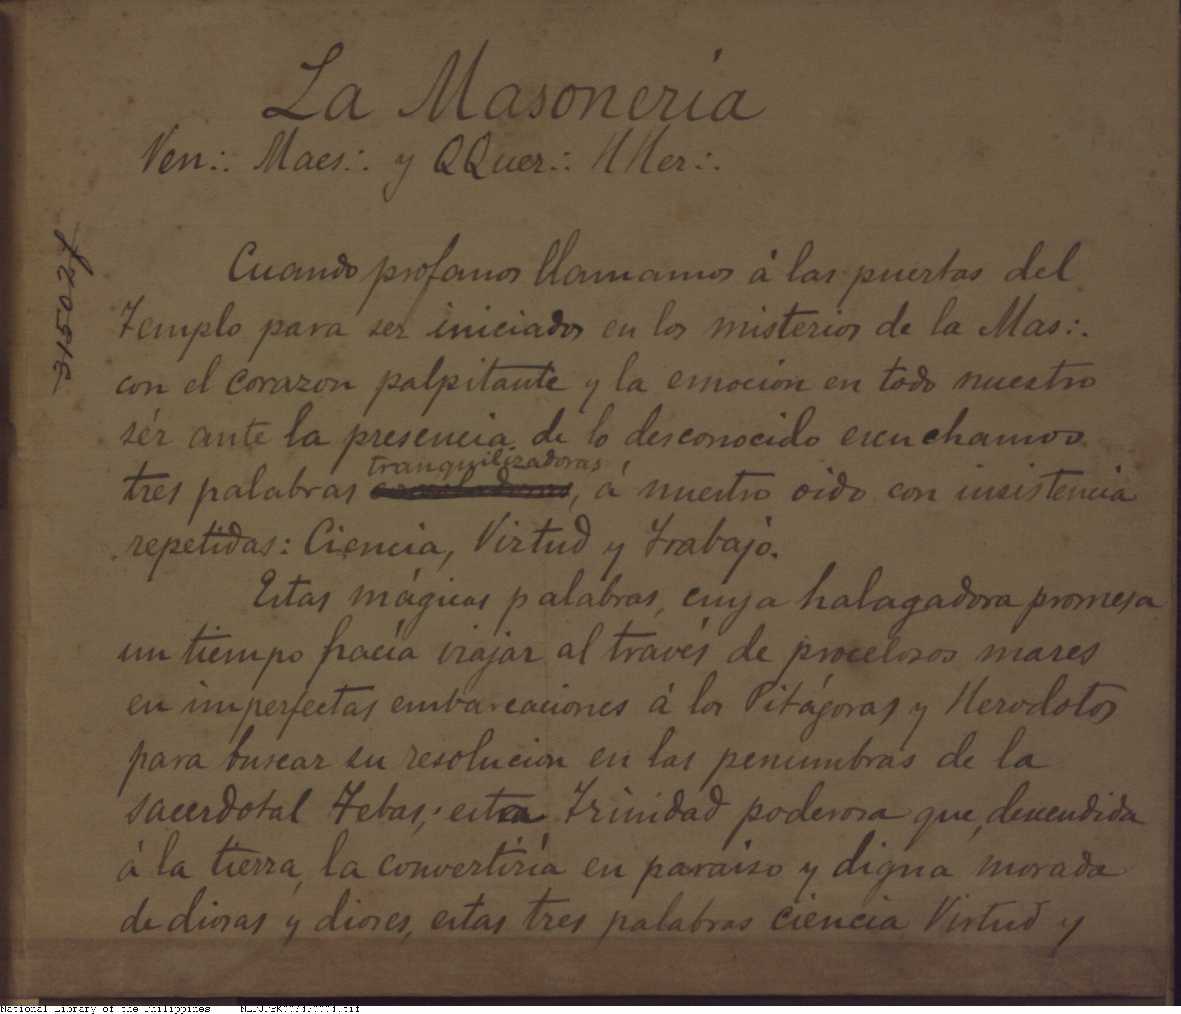 La Masonería
Ven∴ Maes∴ y QQuer∴ HHer∴
Cuando profanos llamamos á las puertas del
Templo para ser iniciados en los misterios de la Mas∴
con el corazon palpitante y la emoción en todo nuestro
sér ante la presencia de lo desconocido escuchamos
tranquilizadoras
tres palabras , á nuestro oido con insistencia
repetidas: Ciencia, Virtud y Trabajo.
Estas mágicas palabras, cuya halagadora promesa
un tiempo hacía viajar al través de procelosos mares
en imperfectas embarcaciones á los Pitágoras y Herodotos
para buscar su resolucion en las penumbras de la
sacerdotal Tebas; esta Trinidad poderosa que, descendida
á la tierra, la convertiría en paraiso y digna morada
de diosas y dioses, estas tres palabras ciencia Virtud y
315024
National Library of the Philippines